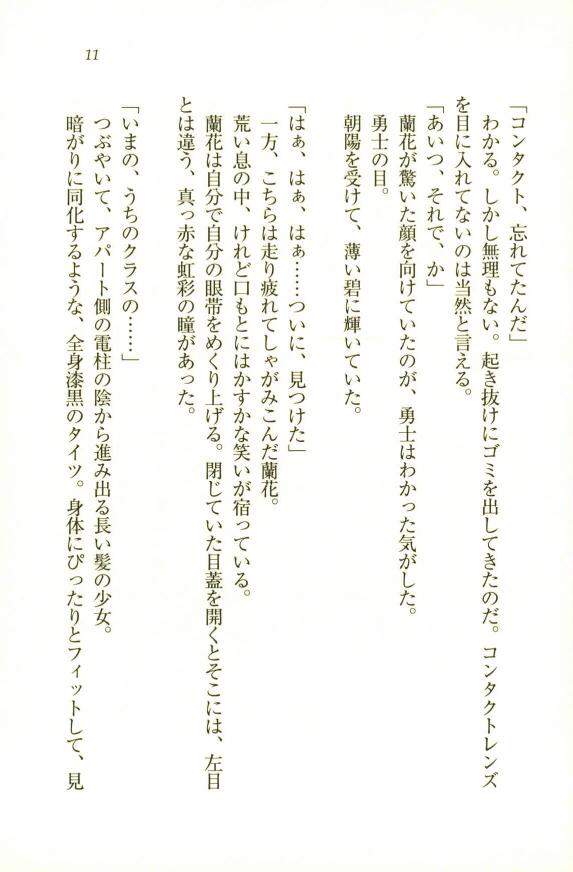 11
「コンタクト、忘れてたんだ」
わかる。しかし無理もない。起き抜けにゴミを出してきたのだ。コンタクトレンズ
を目に入れてないのは当然と言える。
「あいつ、それで、か」
蘭花が驚いた顔を向けていたのが、勇士はわかった気がした。
勇士の目。
朝陽を受けて、薄い碧に輝いていた。
「はぁ、はぁ、はぁ……ついに、見つけた」
一方、こちらは走り疲れてしゃがみこんだ蘭花。
荒い息の中、けれど口もとにはかすかな笑いが宿っている。
蘭花は自分で自分の眼帯をめくり上げる。閉じていた目蓋を開くとそこには、左目
とは違う、真っ赤な虹彩の瞳があった。
「いまの、うちのクラスの……」
つぶやいて、アパート側の電柱の陰から進み出る長い髪の少女。
暗がりに同化するような、全身漆黒のタイツ。身体にぴったりとフィットして、見